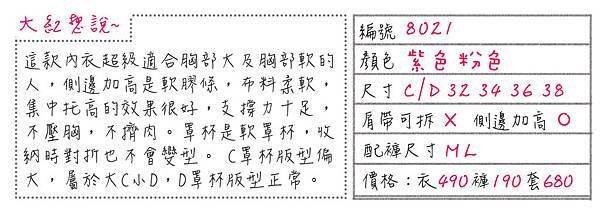 大紅想說~
這款內衣超級適合胸部大及胸部軟的
人，側邊加高是軟膠條，布料柔軟，
集中托高的效果很好，支撐力十足，
不壓胸，不擠肉。罩杯是軟罩杯，收
納時對折也不會變型。C罩杯版型偏
大，屬於大C小D，D罩杯版型正常。
編號 8021
顏色 紫色粉色
尺寸 C/D 32 34 36 38
肩帶可拆 X 側邊加高 O
配褲尺寸 ML
價格：衣490褲190套680